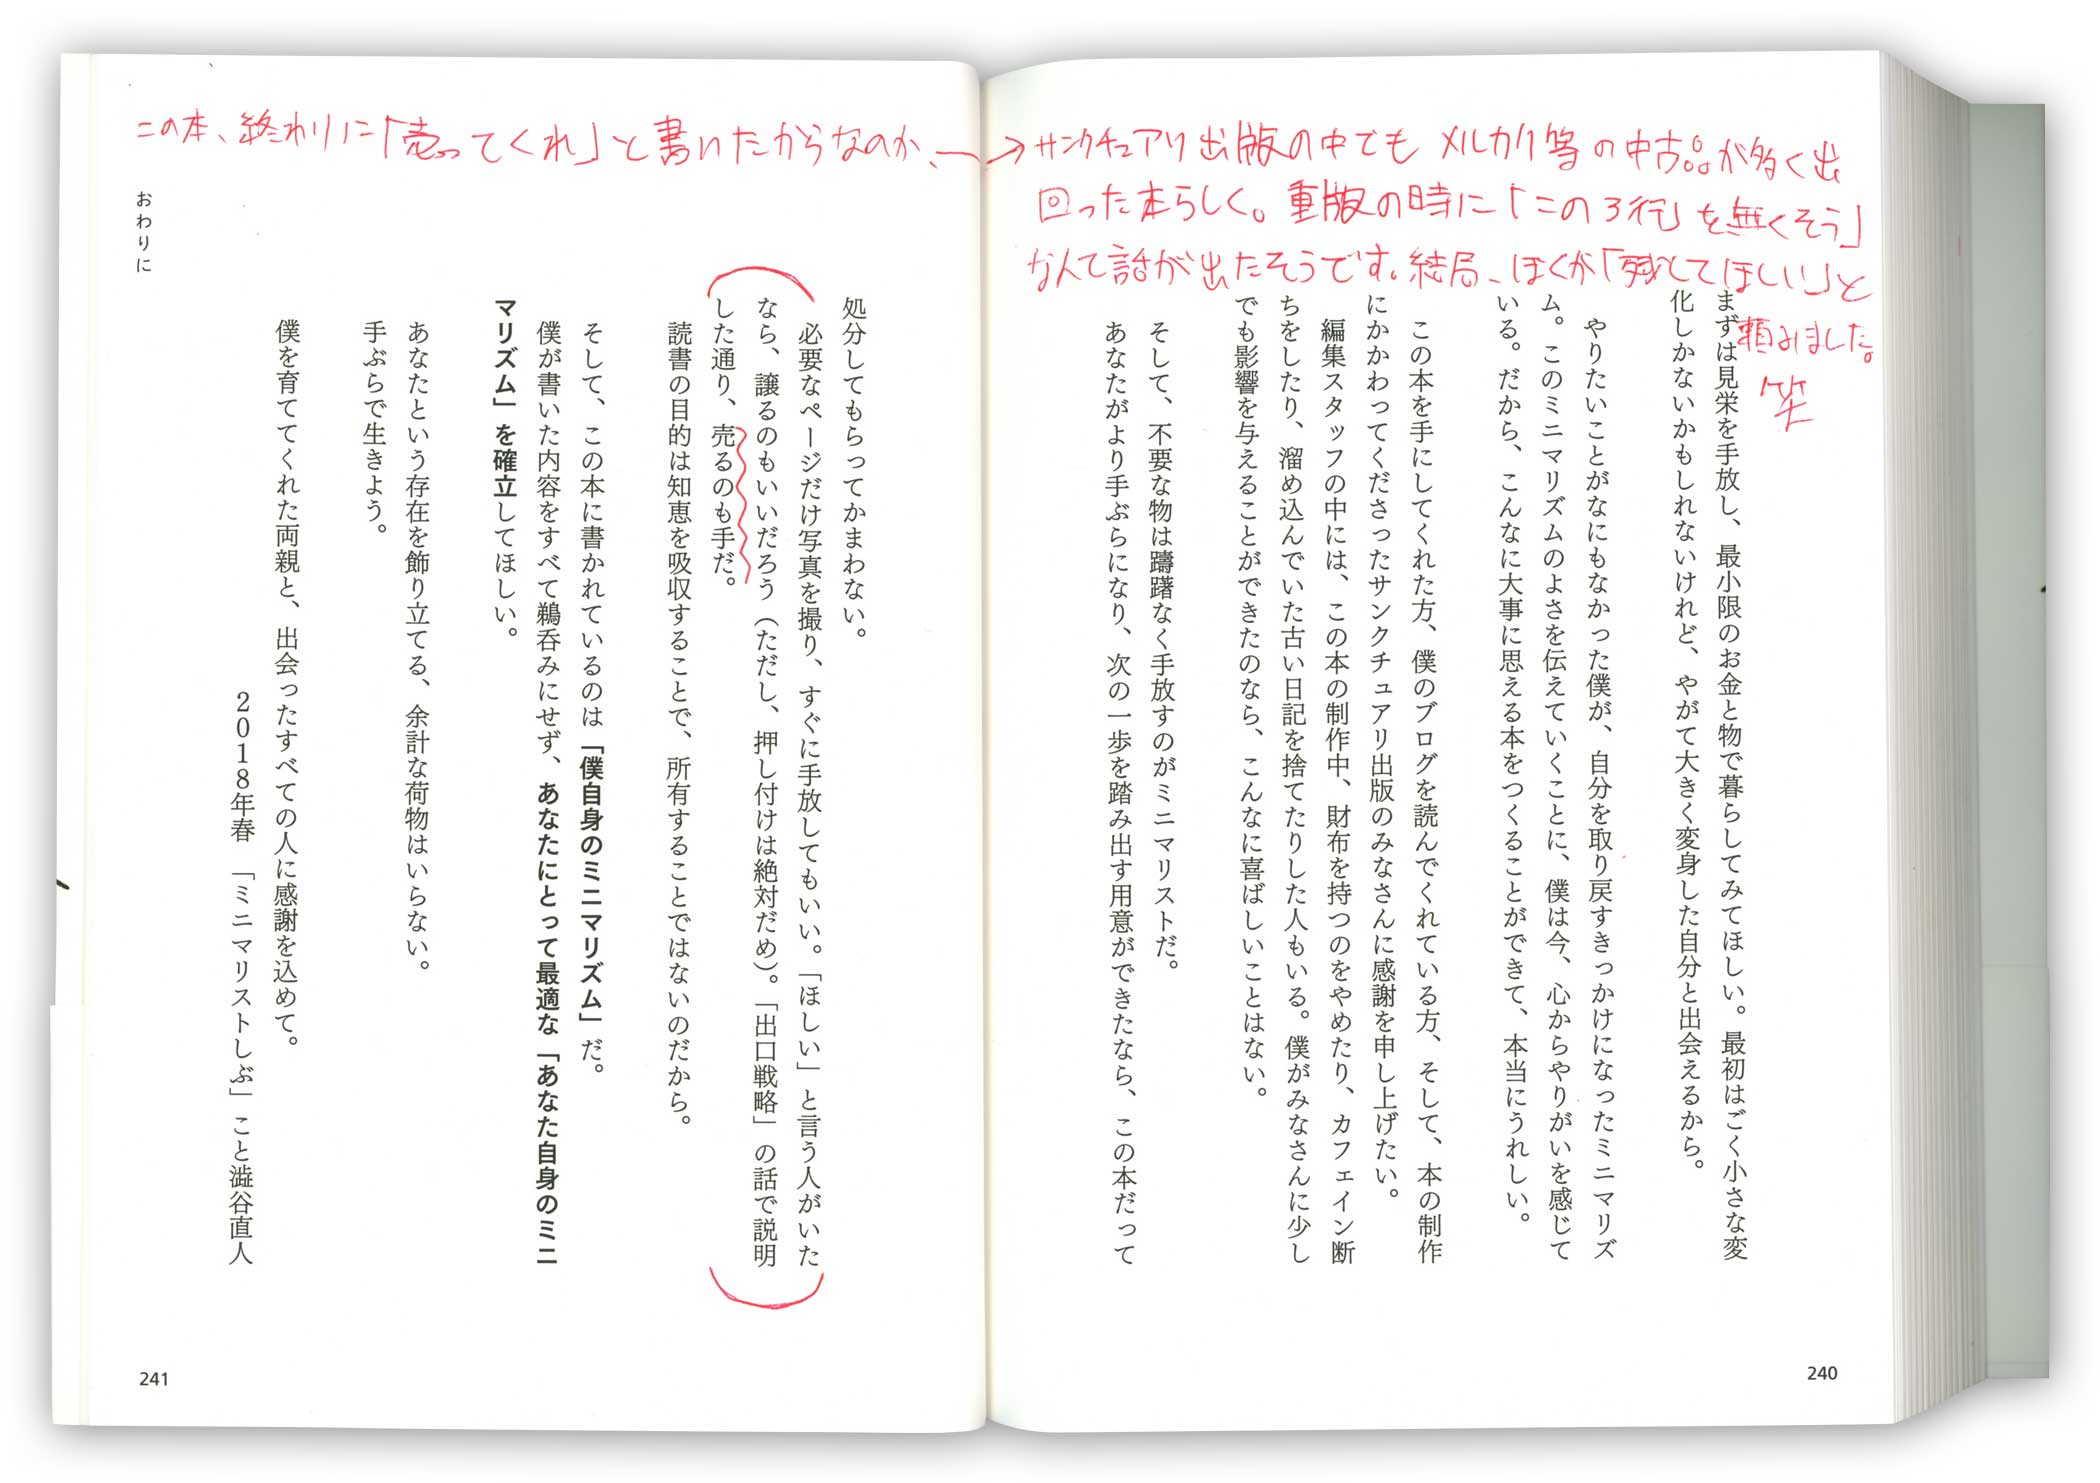 サンクチュアリ出版の中でも メルカリ等の中古品が多く出
回った本らしく。重版の時に「この3行」を無くそう」
なんて話が出たそうです。結局、ぼくが「残してほしい」と
頼みました。
笑
まずは見栄を手放し、最小限のお金と物で暮らしてみてほしい。最初はごく小さな変
化しかないかもしれないけれど、やがて大きく変身した自分と出会えるから。
やりたいことがなにもなかった僕が、自分を取り戻すきっかけになったミニマリズ
ム。このミニマリズムのよさを伝えていくことに、僕は今、心からやりがいを感じて
いる。だから、こんなに大事に思える本をつくることができて、本当にうれしい。
この本を手にしてくれた方、僕のブログを読んでくれている方、そして、本の制作
にかかわってくださったサンクチュアリ出版のみなさんに感謝を申し上げたい。
編集スタッフの中には、この本の制作中、財布を持つのをやめたり、カフェイン断
ちをしたり、溜め込んでいた古い日記を捨てたりした人もいる。僕がみなさんに少し
でも影響を与えることができたのなら、こんなに喜ばしいことはない。
そして、不要な物は躊躇なく手放すのがミニマリストだ。
あなたがより手ぶらになり、次の一歩を踏み出す用意ができたなら、この本だって
240
この本、終わりに「売ってくれ」と書いたからなのか、→
処分してもらってかまわない。
必要なページだけ写真を撮り、すぐに手放してもいい。「ほしい」と言う人がいた
なら、譲るのもいいだろう（ただし、押し付けは絶対だめ）。「出口戦略」の話で説明
した通り、売るのも手だ。
読書の目的は知恵を吸収することで、所有することではないのだから。
そして、この本に書かれているのは「僕自身のミニマリズム」だ。
僕が書いた内容をすべて鵜呑みにせず、あなたにとって最適な「あなた自身のミニ
マリズム」を確立してほしい。
あなたという存在を飾り立てる、余計な荷物はいらない。
手ぶらで生きよう。
僕を育ててくれた両親と、出会ったすべての人に感謝を込めて。
2018年春 「ミニマリストしぶ」こと澁谷直人
おわりに
241